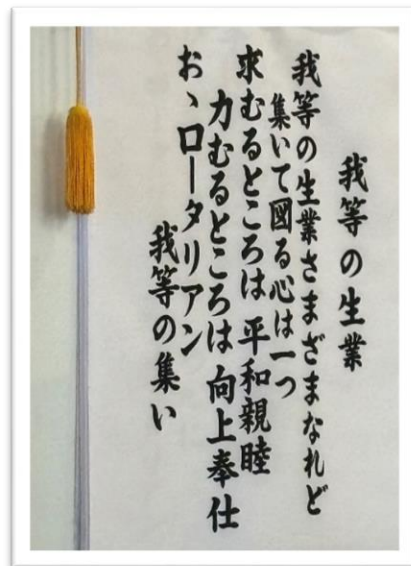 我等の生業
我等の生業さまざまなれど
集いて図る心は一つ
求むるところは 平和親睦
力むるところは 向上奉仕
お、ロータリアン
我等の集い